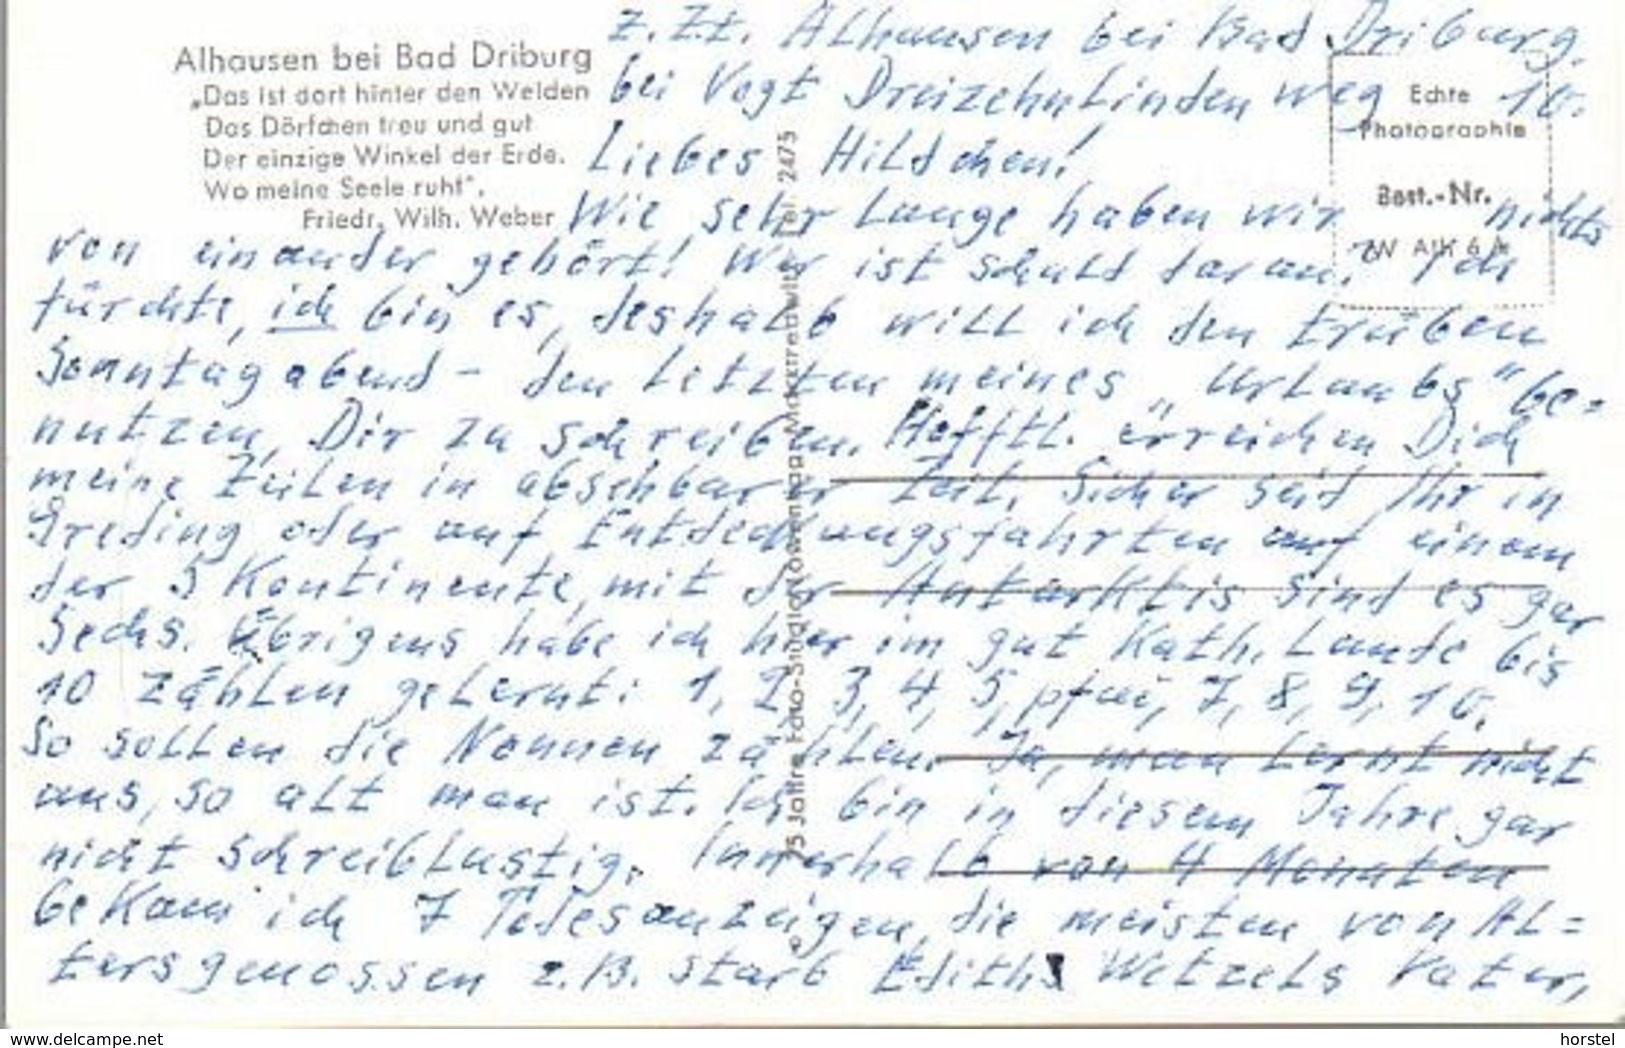 Alhausen bei Bad Driburg
„Das ist dort hinter den Weiden
Das Dörfchen treu und gut
Der einzige Winkel der Erde.
Wo meine Seele ruht".
Friedr. Wilh. Weber
z. Zt. Alhausen bei Bad Driburg.
bei Vogt Dreizehnlinden weg 10.
Liebes Hildchen!
Wie sehr lange haben wir nichts
von einander gehört! Wer ist schuld daran? Ich
fürchte, ich bin es, deshalb will ich den trüben
Sonntagabend - den letzten meines „Urlaubs" be=
nutzen, Dir zu schreiben. Hofftl. erreichen Dich
meine Zeilen in absehbarer Zeit. Sicher seid Ihr in
Greding oder auf Entdeckungsfahrten auf einem
der 5 Kontinente, mit der Antarktis sind es gar
Sechs. Übrigens habe ich hier im gut kath. Lande bis
10 zählen gelernt: 1, 2, 3, 4, 5, pfui, 7, 8, 9, 10.
So sollen die Nonnen zählen. Ja, man lernt nicht
aus, so alt man ist. Ich bin in diesem Jahre gar
nicht schreiblustig. Innerhalb von 4 Monaten
bekam ich 7 Todesanzeigen, die meisten von Al=
tersgenossen z.B. starb Edith Wetzels Vater,
Echte
Photographie
Best.-Nr.
75 Jahre Foto-Studio Tel. 2475
www.delcampe.net
horstel